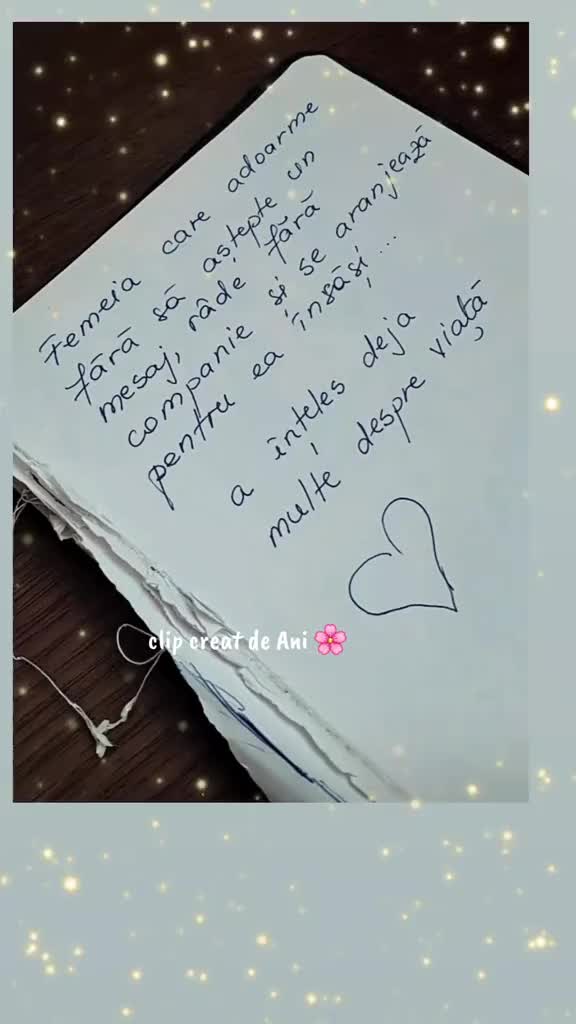 Femeia care adoarme
fără să aștepte un
mesaj, râde fără
companie și se aranjează
pentru ea însăși...
a înțeles deja
multe despre viață
clip creat de Ani 🌸